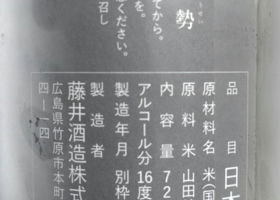 勢
てから。
を。
ください。
召し
品目 日
原材料名 米(国
原料米 山田
内容量 72
アルコール分 16度
製造年月 別枠
製造者
藤井酒造株式
広島県竹原市本町
四ー一四